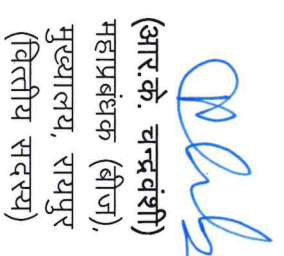 (आर.के. चन्द्रवंशी)
महाप्रबंधक (बीज),
मुख्यालय, रायपुर
(वित्तीय सदस्य)